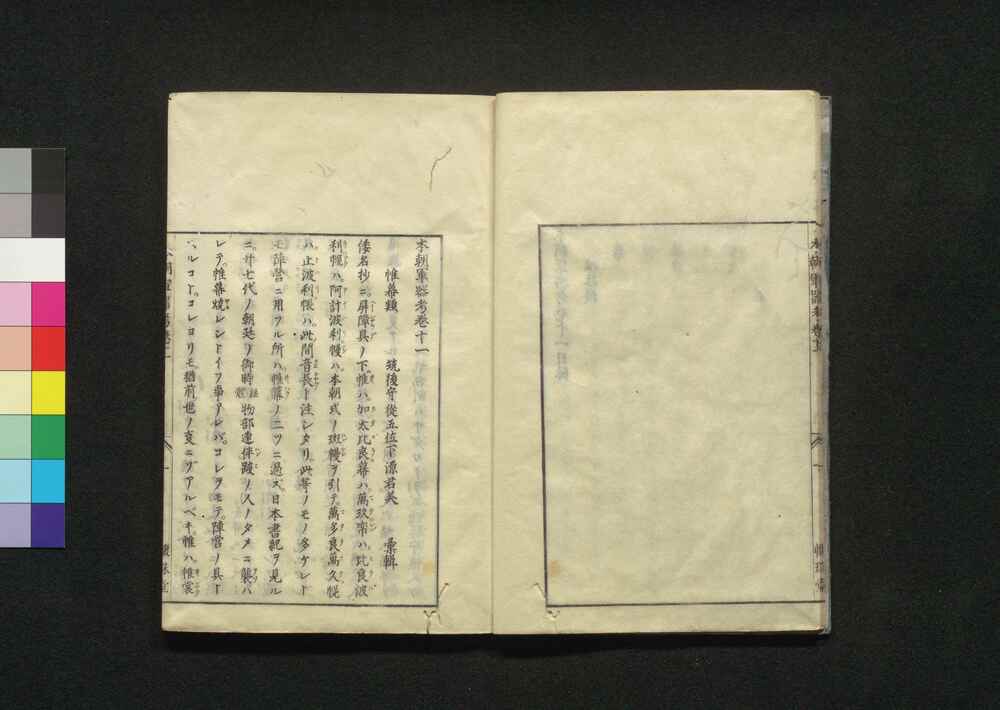 本朝軍器考巻十一
筑後守從五位下源君美 彙輯
帷幕類
倭名抄ニ屏障具ノ下帷ハ加太比良幕ハ萬玖帟ハ比良波
利幄ハ阿計波利幔ハ本朝式ノ斑幔ヲ引テ萬多良萬久幌
ハ止波利帳ハ此間音長ト注シタリ此等ノモノ多ケレト
モ陣営ニ用フル所ハ帷幕ノ二ツニ過ス日本書紀ヲ見ル
ニ廿七代ノ朝廷ノ御時物部連伴跛ノ人ノタメニ襲ハ
レテ帷幕焼レシトイフ事アレバコレヲモテ陣営ノ具ト
ハルコトコレヨリモ猶前世ノ事ニゾアルベキ帷ハ帷裳
本朝軍器考巻十一